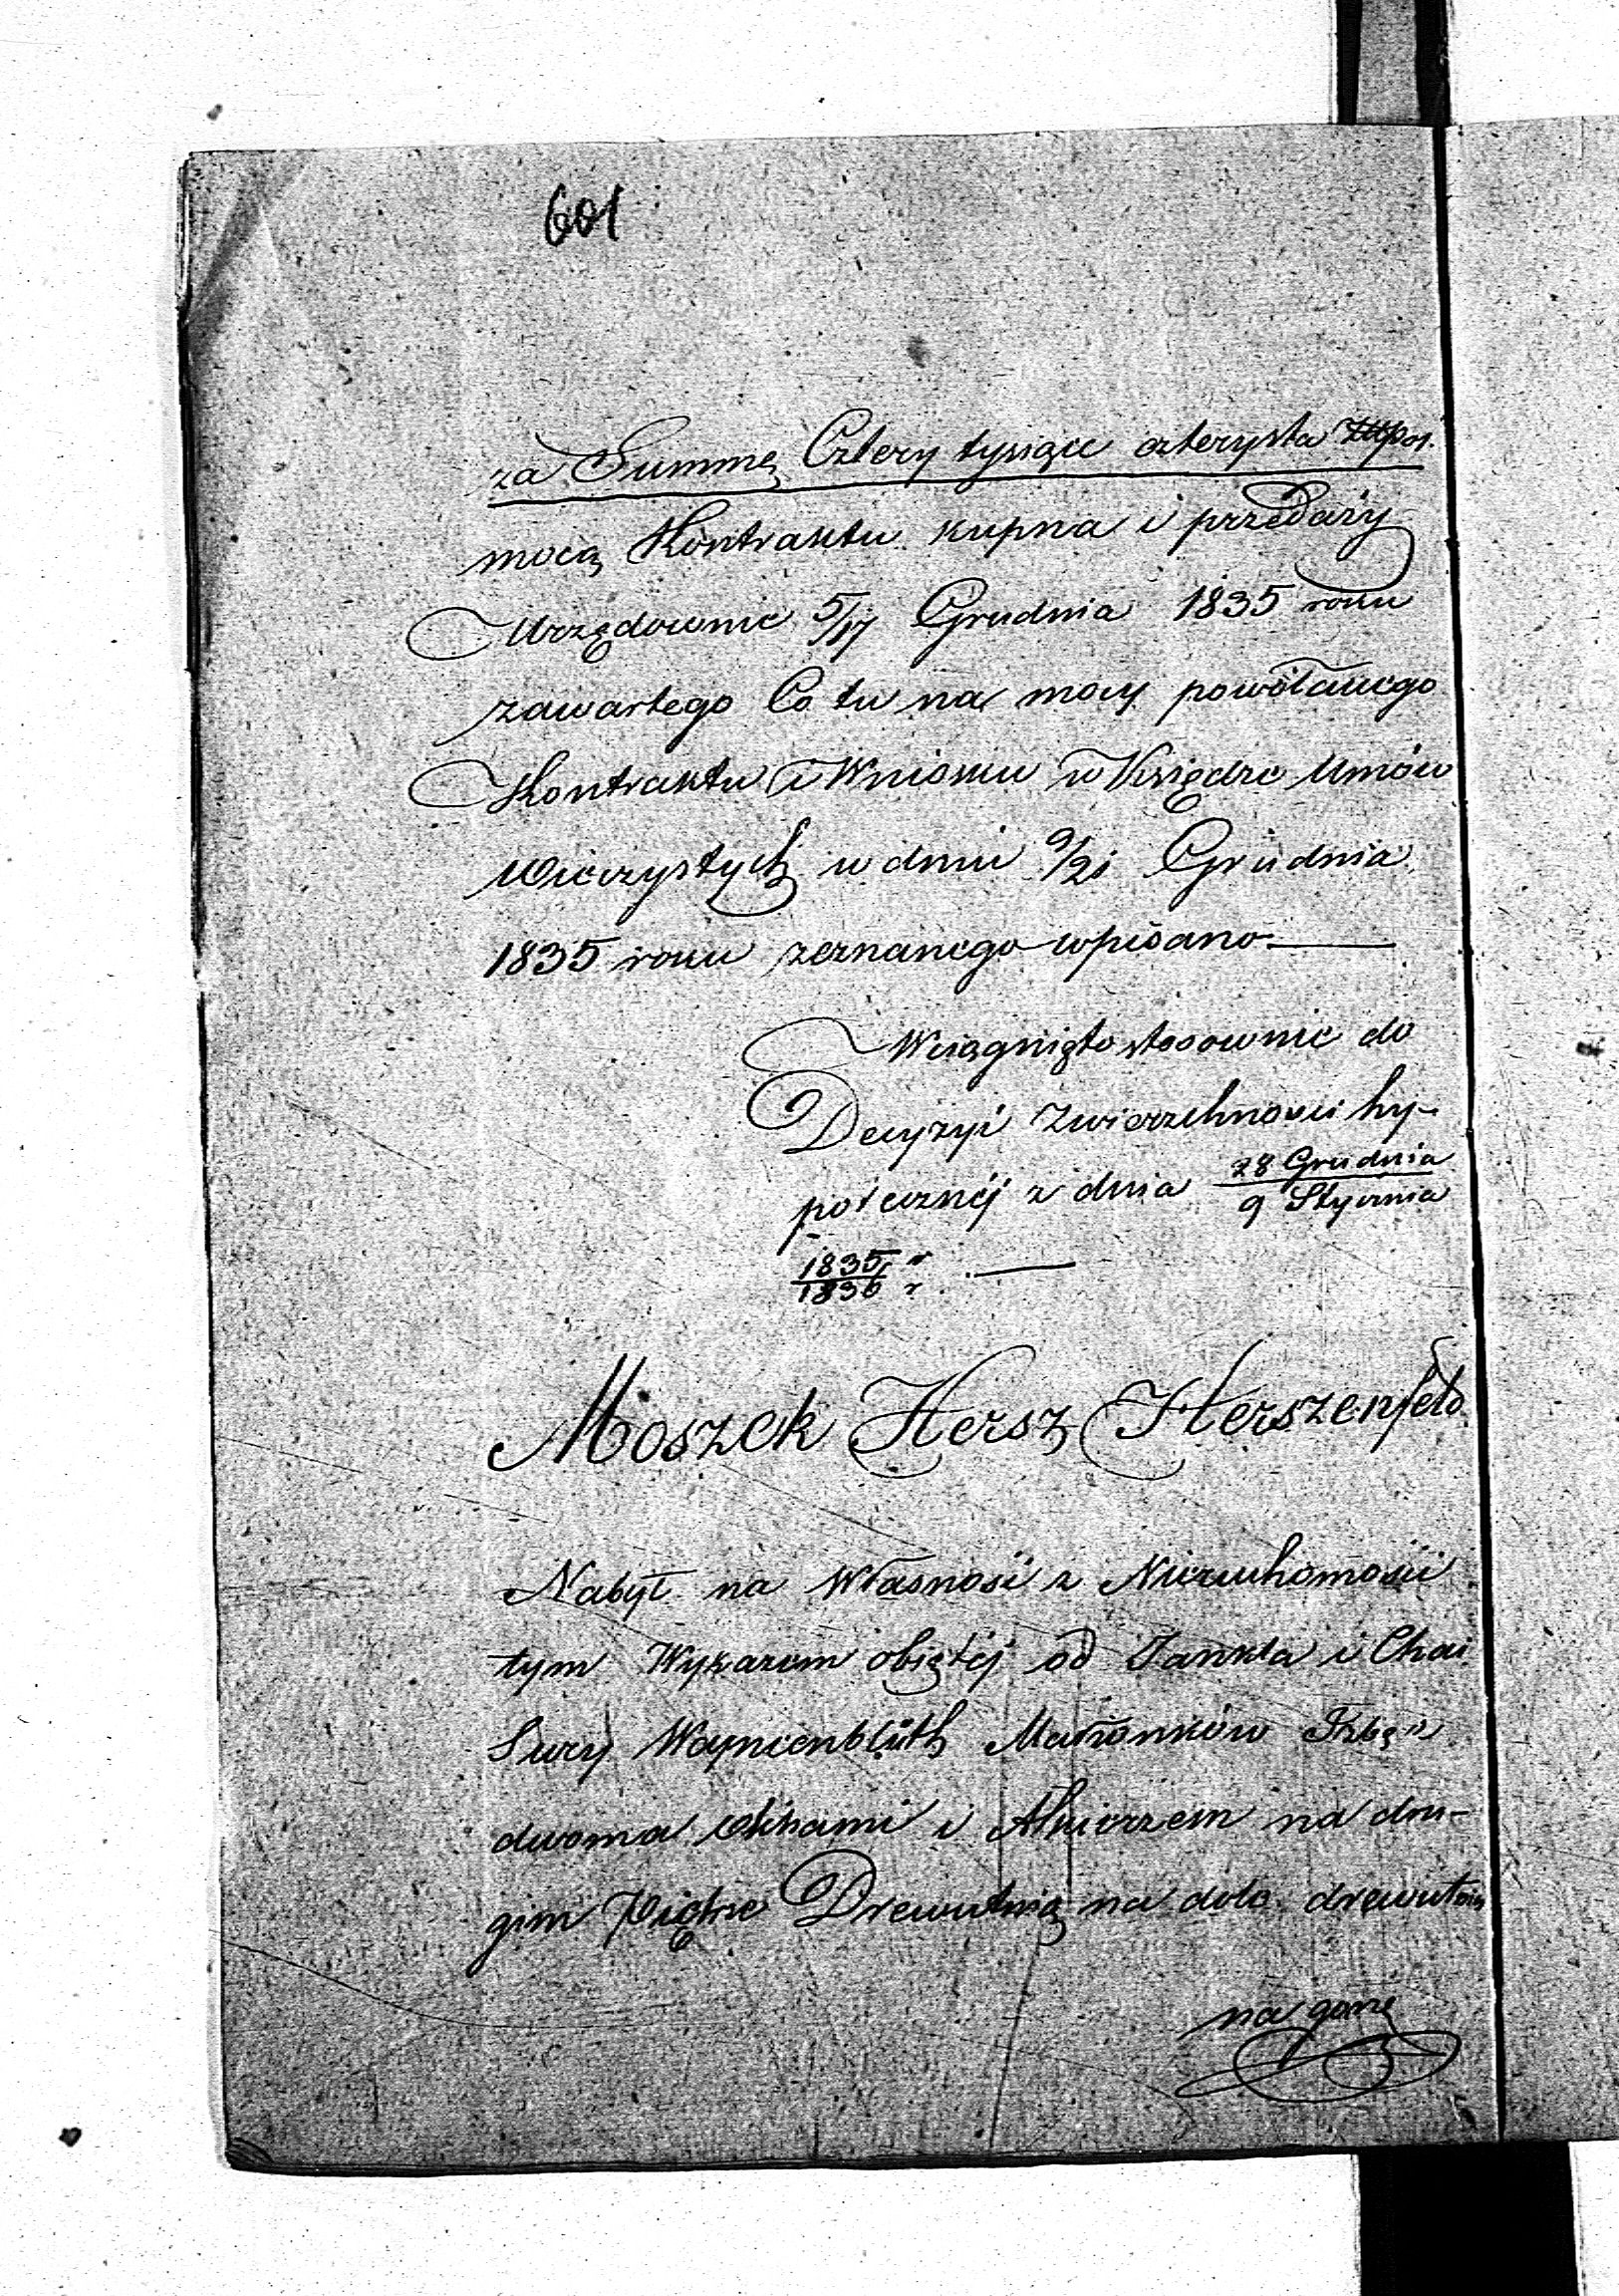 601
za Summę Cztery tysiące czterysta Złłpol.
mocą Kontraktu kupna i przedaży
Urzędownie 5/17 Grudnia 1835 roku
zawartego Co tu na mocy powołanego
Kontraktu i Wniosku w Księdze Umów
Wieczystych w dniu 9/21 Grudnia
1835 roku zeznanego wpisano
Wciągnięto stosownie do
Decyzyi Zwierzchności hy-
potecznéj z dnia 28 Grudnia / 9 Stycznia
1835/1836 r.
Moszek Hersz Herszenfeld
Nabył na Własność z Nieruchomości
tym Wykazem obiętéj od Jankla i Chai
Sury Małżonków Izbę o
dwoma Oknami i Alkierzem na dru-
gim Piętrze Drewutnią na dole drewutnią
na górze